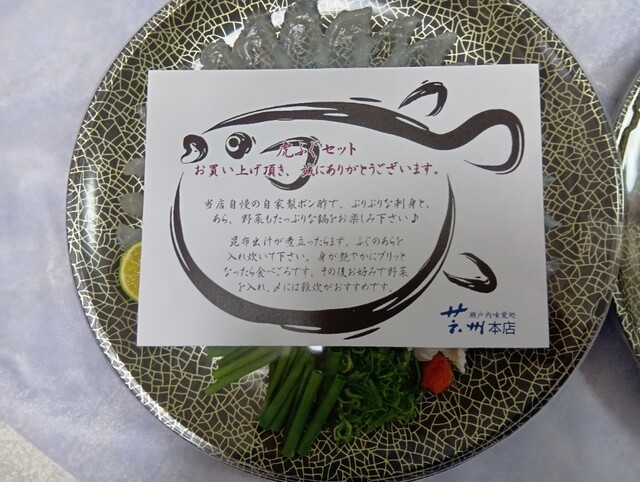 虎ふぐセット
お買い上げ頂き、誠にありがとうございます。
当店自慢の自家製ポン酢で、ぷりぷりな刺身と、
あら、野菜もたっぷりな鍋をお楽しみ下さい♪
昆布出汁が煮立ったらまず、ふぐのあらを
入れ炊いて下さい。身が艶やかにプリッと
なったら食べごろです。その後お好みで野菜
を入れ、〆には雑炊がおすすめです。
瀬戸内味覚処
芸州本店